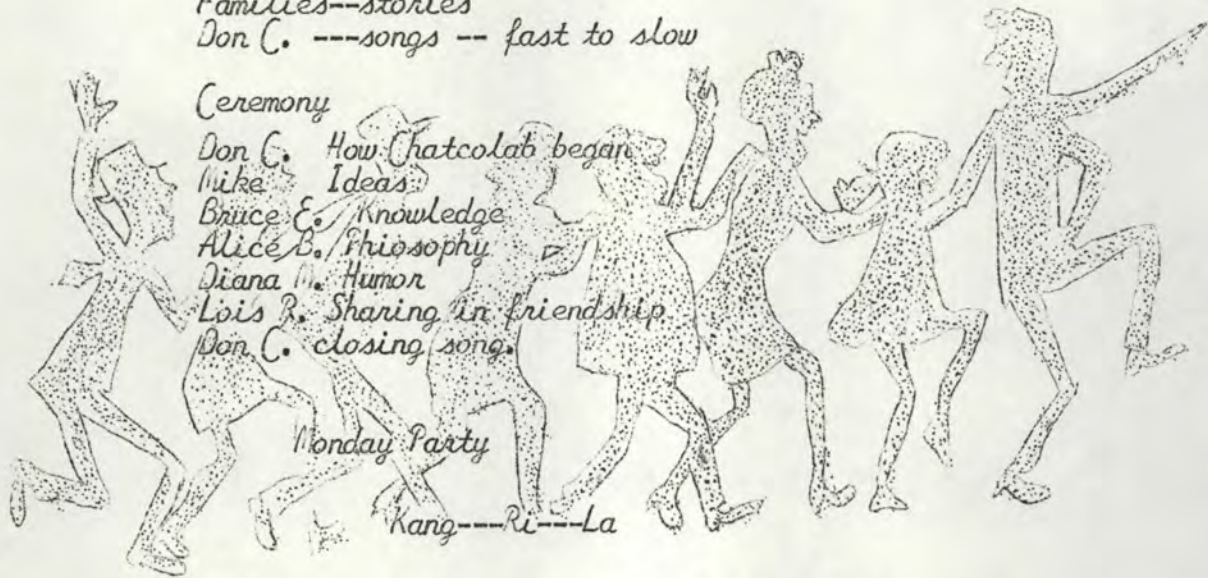 Families--stories
Don C. ---songs -- fast to slow
Ceremony
Don C. How Chatcolab began
Mike Ideas
Bruce E. Knowledge
Alice B. Phiosophy
Diana M. Humor
Lois R. Sharing in friendship
Don C. closing song.
Monday Party
Kang---Ri---La